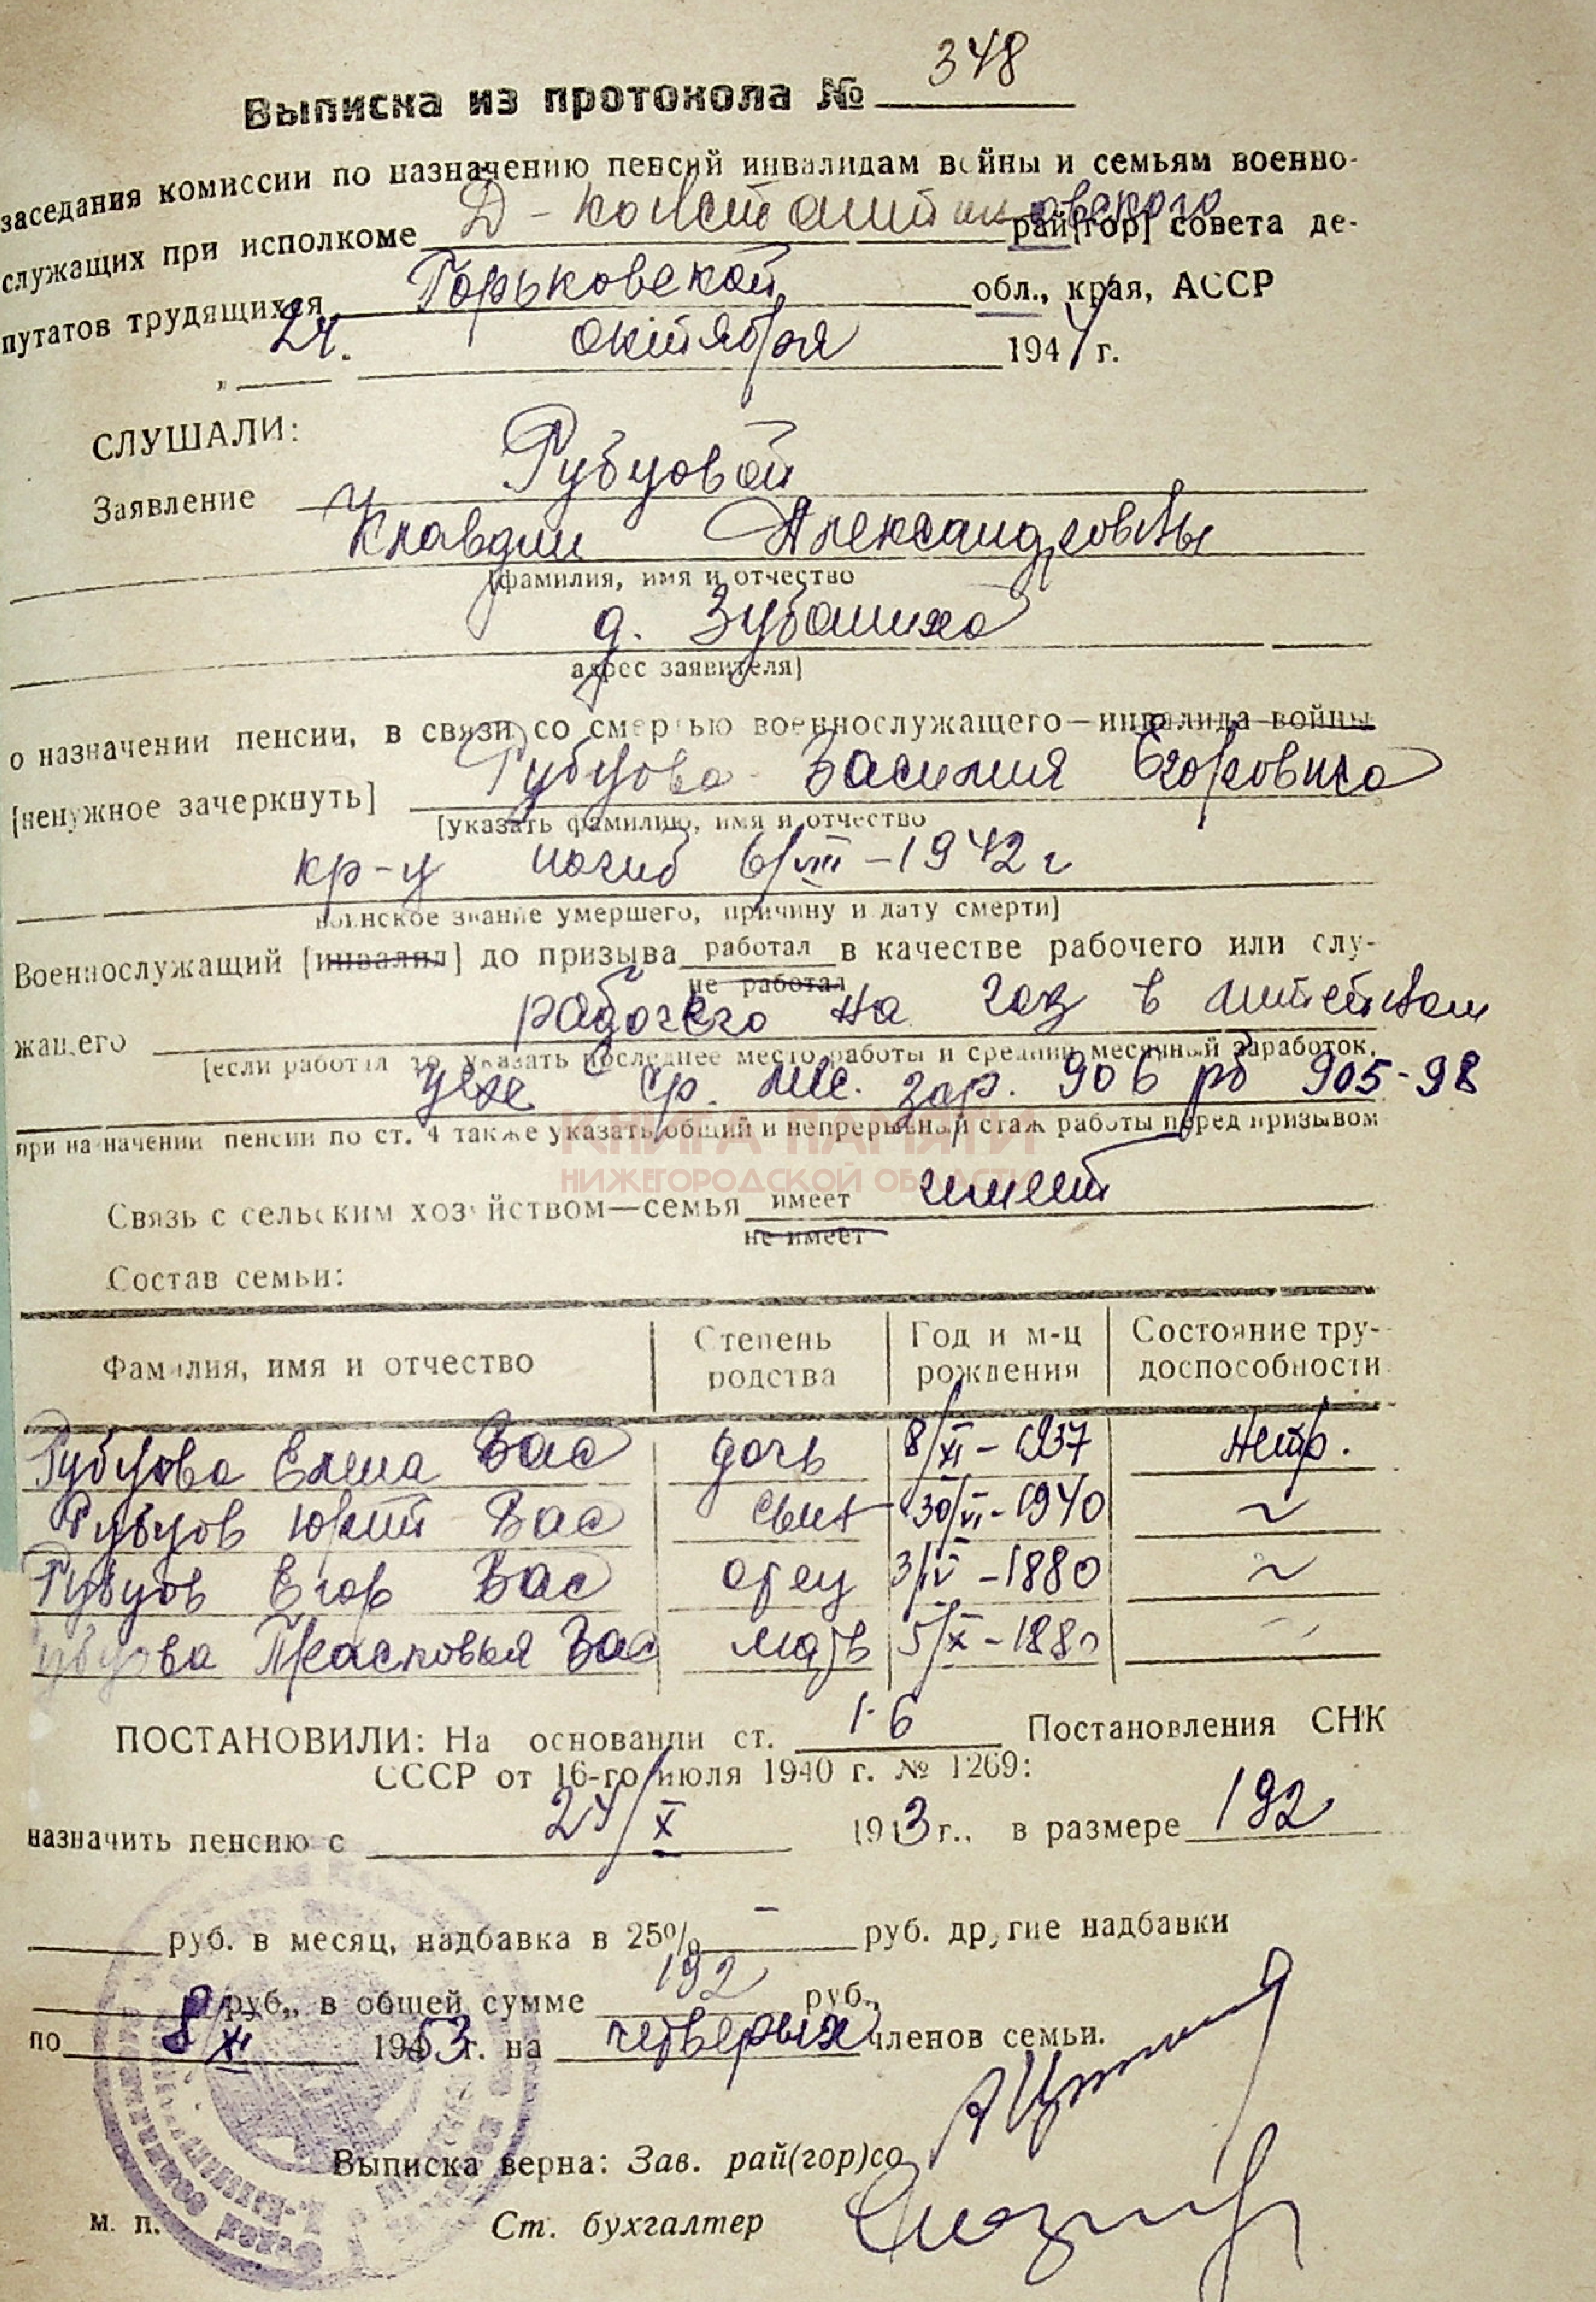 Выписка из протокола № 348
заседания комиссии по назначению пенсий инвалидам войны и семьям военно-
служащих при исполкоме Д-Константиновского рай[гор] совета де-
путатов трудящихся Горьковской обл., края, АССР
" 24. октября 1944 г.
СЛУШАЛИ:
Заявление Рубцовой
Клавдии Александровны
[фамилия, имя и отчество
д. Зубаниха
адрес заявителя]
о назначении пенсии, в связи со смертью военнослужащего—инвалида войны
[ненужное зачеркнуть] Рубцова Василия Егоровича
[указать фамилию, имя и отчество
кр-ц погиб 6/VIII-1942 г
воинское звание умершего, причину и дату смерти]
Военнослужащий [инвалид] до призыва работал в качестве рабочего или слу-
не работал
жащего рабочего на газ в литейном
[если работал то указать последнее место работы и средний месячный заработок,
цехе ср. мес. зар. 906 рб 905-98
при назначении пенсии по ст. 4 также указать общий и непрерывный стаж работы перед призывом
КНИГА ПАМЯТИ
НИЖЕГОРОДСКОЙ ОБЛАСТИ
Связь с сельским хозяйством—семья имеет имеет
не имеет
Состав семьи:
Фамилия, имя и отчество Степень родства Год и м-ц рождения Состояние тру-доспособности
Рубцова Елена Вас дочь 8/XI-1937 Нетр.
Рубцов Юрий Вас сын 30/VI-1940 ~
Рубцов Егор Вас отец 3/IV-1880 ~
Рубцова Прасковья Вас мать 5/X-1880 ~
ПОСТАНОВИЛИ: На основании ст. 1-6 Постановления СНК
СССР от 16-го июля 1940 г. № 1269:
назначить пенсию с 24/X 1943 г., в размере 192
руб. в месяц, надбавка в 25% - руб. другие надбавки
руб., в общей сумме 192 руб.,
по 8/XI 1953 г. на четверых членов семьи.
Выписка верна: Зав. рай(гор)со
м. п. Ст. бухгалтер